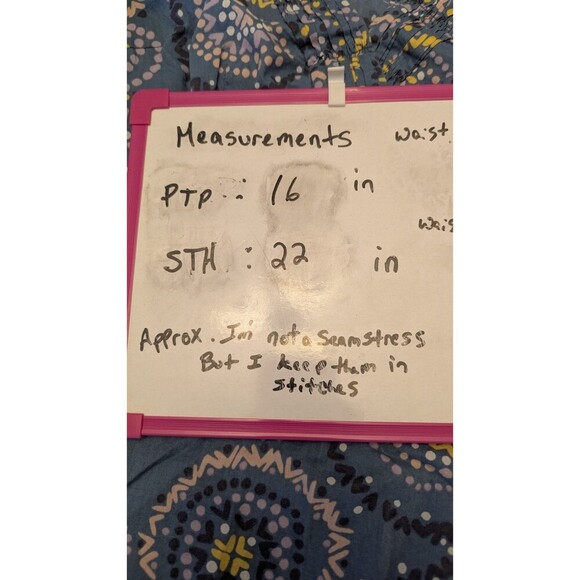 Measurements
Waist
PTP : 16 in
STH : 22 in
Approx. I'm not a seamstress
But I keep them in
stitches